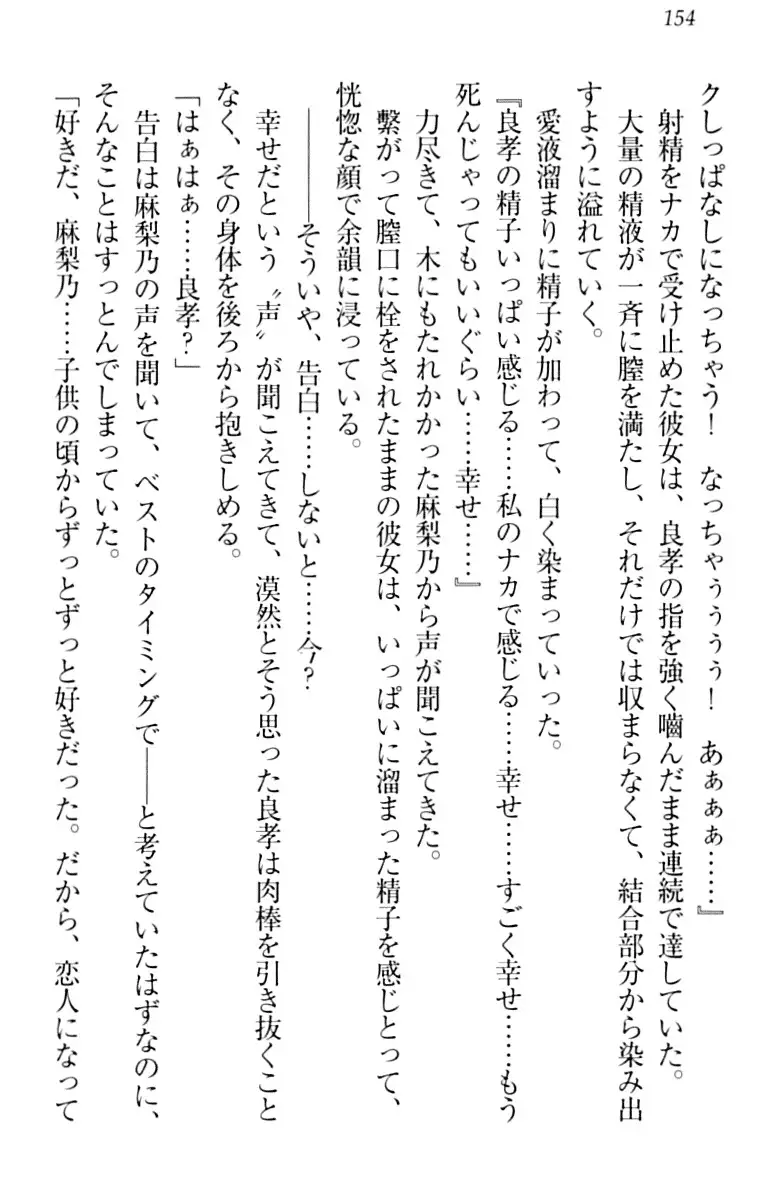 154
クしっぱなしになっちゃう！　なっちゃぅぅぅぅ！　あぁぁぁ……』
射精をナカで受け止めた彼女は、良孝の指を強く嚙んだまま連続で達していた。
大量の精液が一斉に膣を満たし、それだけでは収まらなくて、結合部分から染み出
すように溢れていく。
愛液溜まりに精子が加わって、白く染まっていった。
『良孝の精子いっぱい感じる……私のナカで感じる……幸せ……すごく幸せ……もう
死んじゃってもいいぐらい……幸せ……』
力尽きて、木にもたれかかった麻梨乃から声が聞こえてきた。
繋がって膣口に栓をされたままの彼女は、いっぱいに溜まった精子を感じとって、
恍惚な顔で余韻に浸っている。
――――そういや、告白……しないと……今？
幸せだという〝声〟が聞こえてきて、漠然とそう思った良孝は肉棒を引き抜くこと
なく、その身体を後ろから抱きしめる。
「はぁはぁ……良孝？」
告白は麻梨乃の声を聞いて、ベストのタイミングで――と考えていたはずなのに、
そんなことはすっとんでしまっていた。
「好きだ、麻梨乃……子供の頃からずっとずっと好きだった。だから、恋人になって